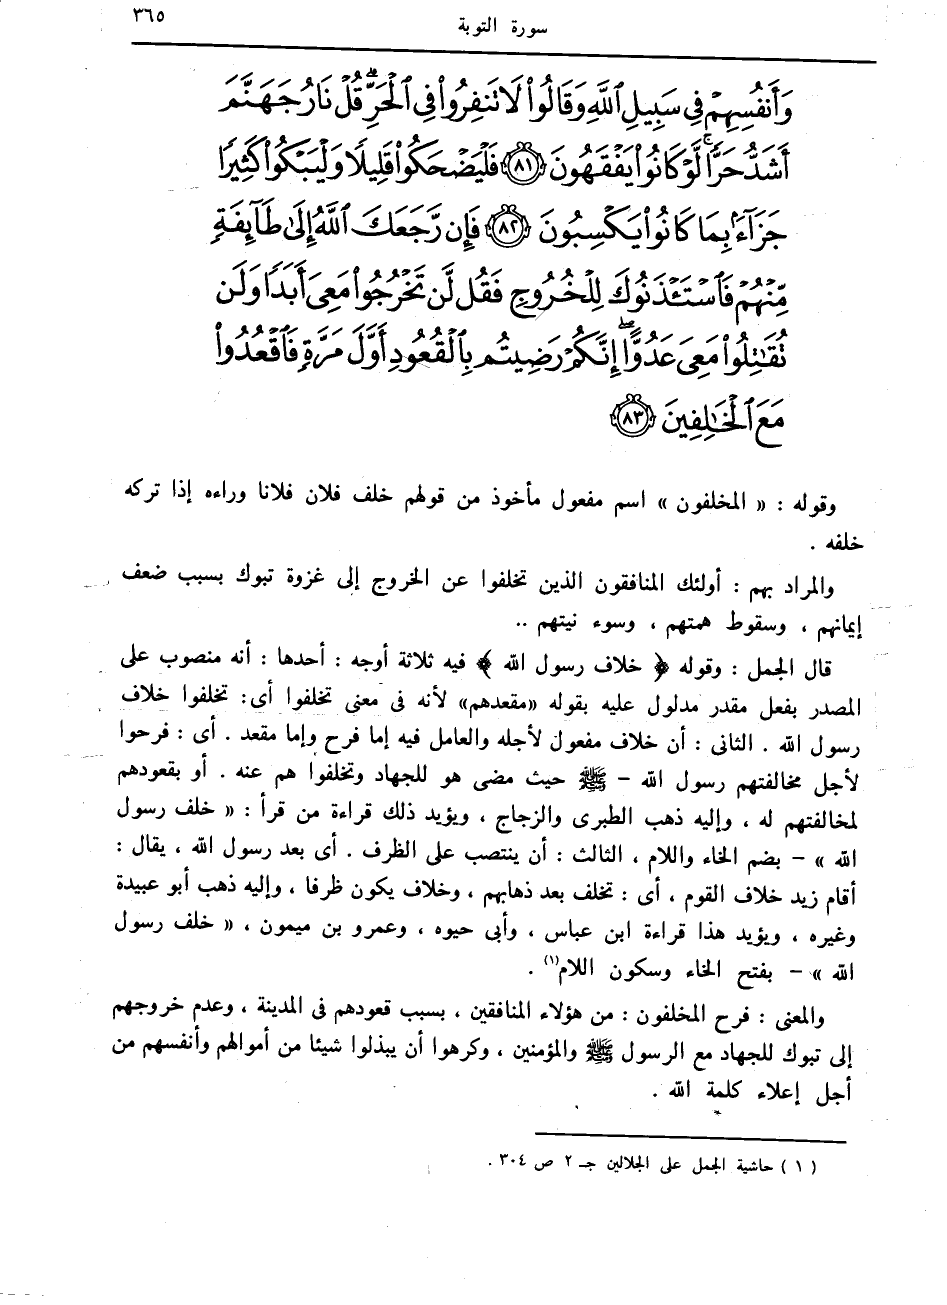 ٣٦٥
سورة التوبة
وَأَنفُسِهِمْ فِي سَبِيلِ ٱللَّهِ وَقَالُوا۟ لَا تَنفِرُوا۟ فِي ٱلْحَرِّ ۗ قُلْ نَارُ جَهَنَّمَ
أَشَدُّ حَرًّا ۚ لَّوْ كَانُوا۟ يَفْقَهُونَ ﴿٨١﴾ فَلْيَضْحَكُوا۟ قَلِيلًا وَلْيَبْكُوا۟ كَثِيرًا
جَزَآءًۢ بِمَا كَانُوا۟ يَكْسِبُونَ ﴿٨٢﴾ فَإِن رَّجَعَكَ ٱللَّهُ إِلَىٰ طَآئِفَةٍ
مِّنْهُمْ فَٱسْتَـْٔذَنُوكَ لِلْخُرُوجِ فَقُل لَّن تَخْرُجُوا۟ مَعِيَ أَبَدًا وَلَن
تُقَـٰتِلُوا۟ مَعِيَ عَدُوًّا ۖ إِنَّكُمْ رَضِيتُم بِٱلْقُعُودِ أَوَّلَ مَرَّةٍ فَٱقْعُدُوا۟
مَعَ ٱلْخَـٰلِفِينَ ﴿٨٣﴾
وقوله : « المخلفون » اسم مفعول مأخوذ من قولهم خلف فلان فلانا وراءه إذا تركه
خلفه .
والمراد بهم : أولئك المنافقون الذين تخلفوا عن الخروج إلى غزوة تبوك بسبب ضعف
إيمانهم ، وسقوط همتهم ، وسوء نيتهم ..
قال الجمل : وقوله ﴿ خلاف رسول الله ﴾ فيه ثلاثة أوجه : أحدها : أنه منصوب على
المصدر بفعل مقدر مدلول عليه بقوله «مقعدهم» لأنه فى معنى تخلفوا أى: تخلفوا خلاف
رسول الله . الثانى : أن خلاف مفعول لأجله والعامل فيه إما فرح وإما مقعد . أى : فرحوا
لأجل مخالفتهم رسول الله - ﷺ حيث مضى هو للجهاد وتخلفوا هم عنه . أو بقعودهم
لمخالفتهم له ، وإليه ذهب الطبرى والزجاج ، ويؤيد ذلك قراءة من قرأ : « خلف رسول
الله » - بضم الخاء واللام ، الثالث : أن ينتصب على الظرف . أى بعد رسول الله ، يقال :
أقام زيد خلاف القوم ، أى : تخلف بعد ذهابهم ، وخلاف يكون ظرفا ، وإليه ذهب أبو عبيدة
وغيره ، ويؤيد هذا قراءة ابن عباس ، وأبى حيوه ، وعمرو بن ميمون ، « خلف رسول
الله » - بفتح الخاء وسكون اللام(١) .
والمعنى : فرح المخلفون : من هؤلاء المنافقين ، بسبب قعودهم فى المدينة ، وعدم خروجهم
إلى تبوك للجهاد مع الرسول ﷺ والمؤمنين ، وكرهوا أن يبذلوا شيئا من أموالهم وأنفسهم من
أجل إعلاء كلمة الله .
( ١ ) حاشية الجمل على الجلالين جـ ٢ ص ٣٠٤ .